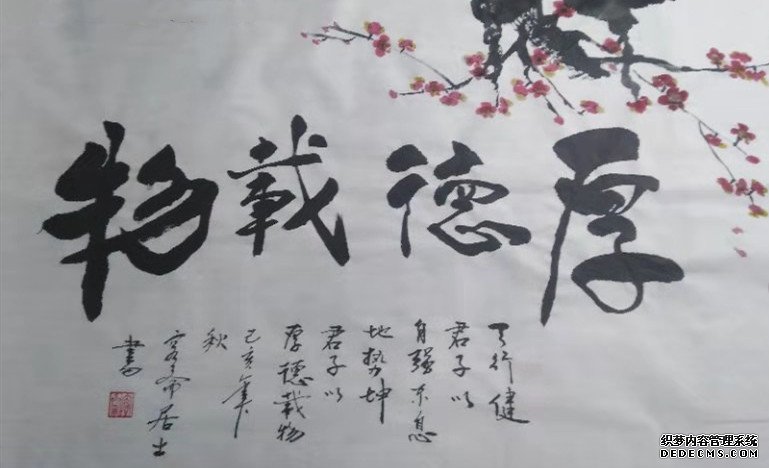 厚德載物
天行健
君子以
自强不息
地势坤
君子以
厚德載物
己亥年
秋
斋居士
書
织梦内容管理系统
DEDECMS.COM